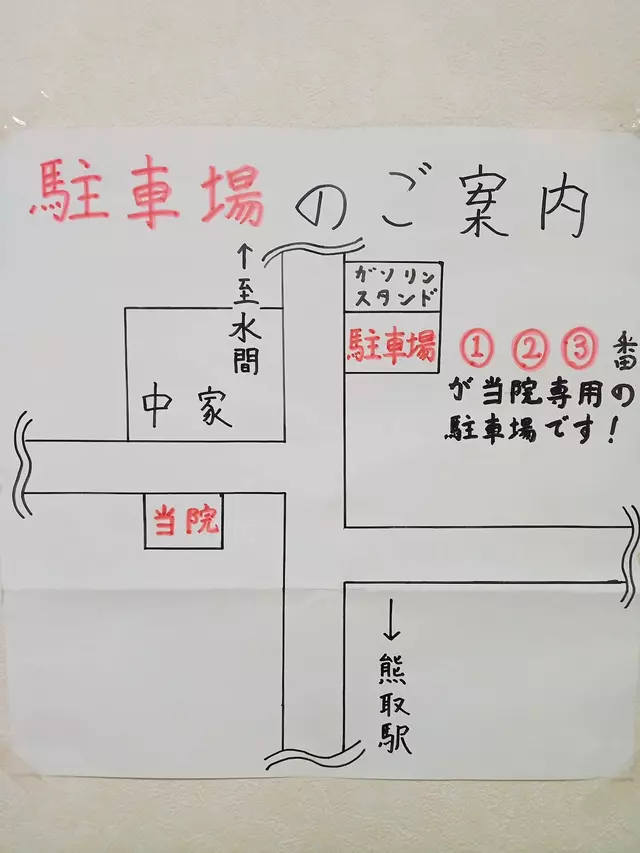 駐車場のご案内
↑至水間
ガソリン
スタンド
駐車場
①②③番
が当院専用の
駐車場です!
中家
当院
↓熊取駅